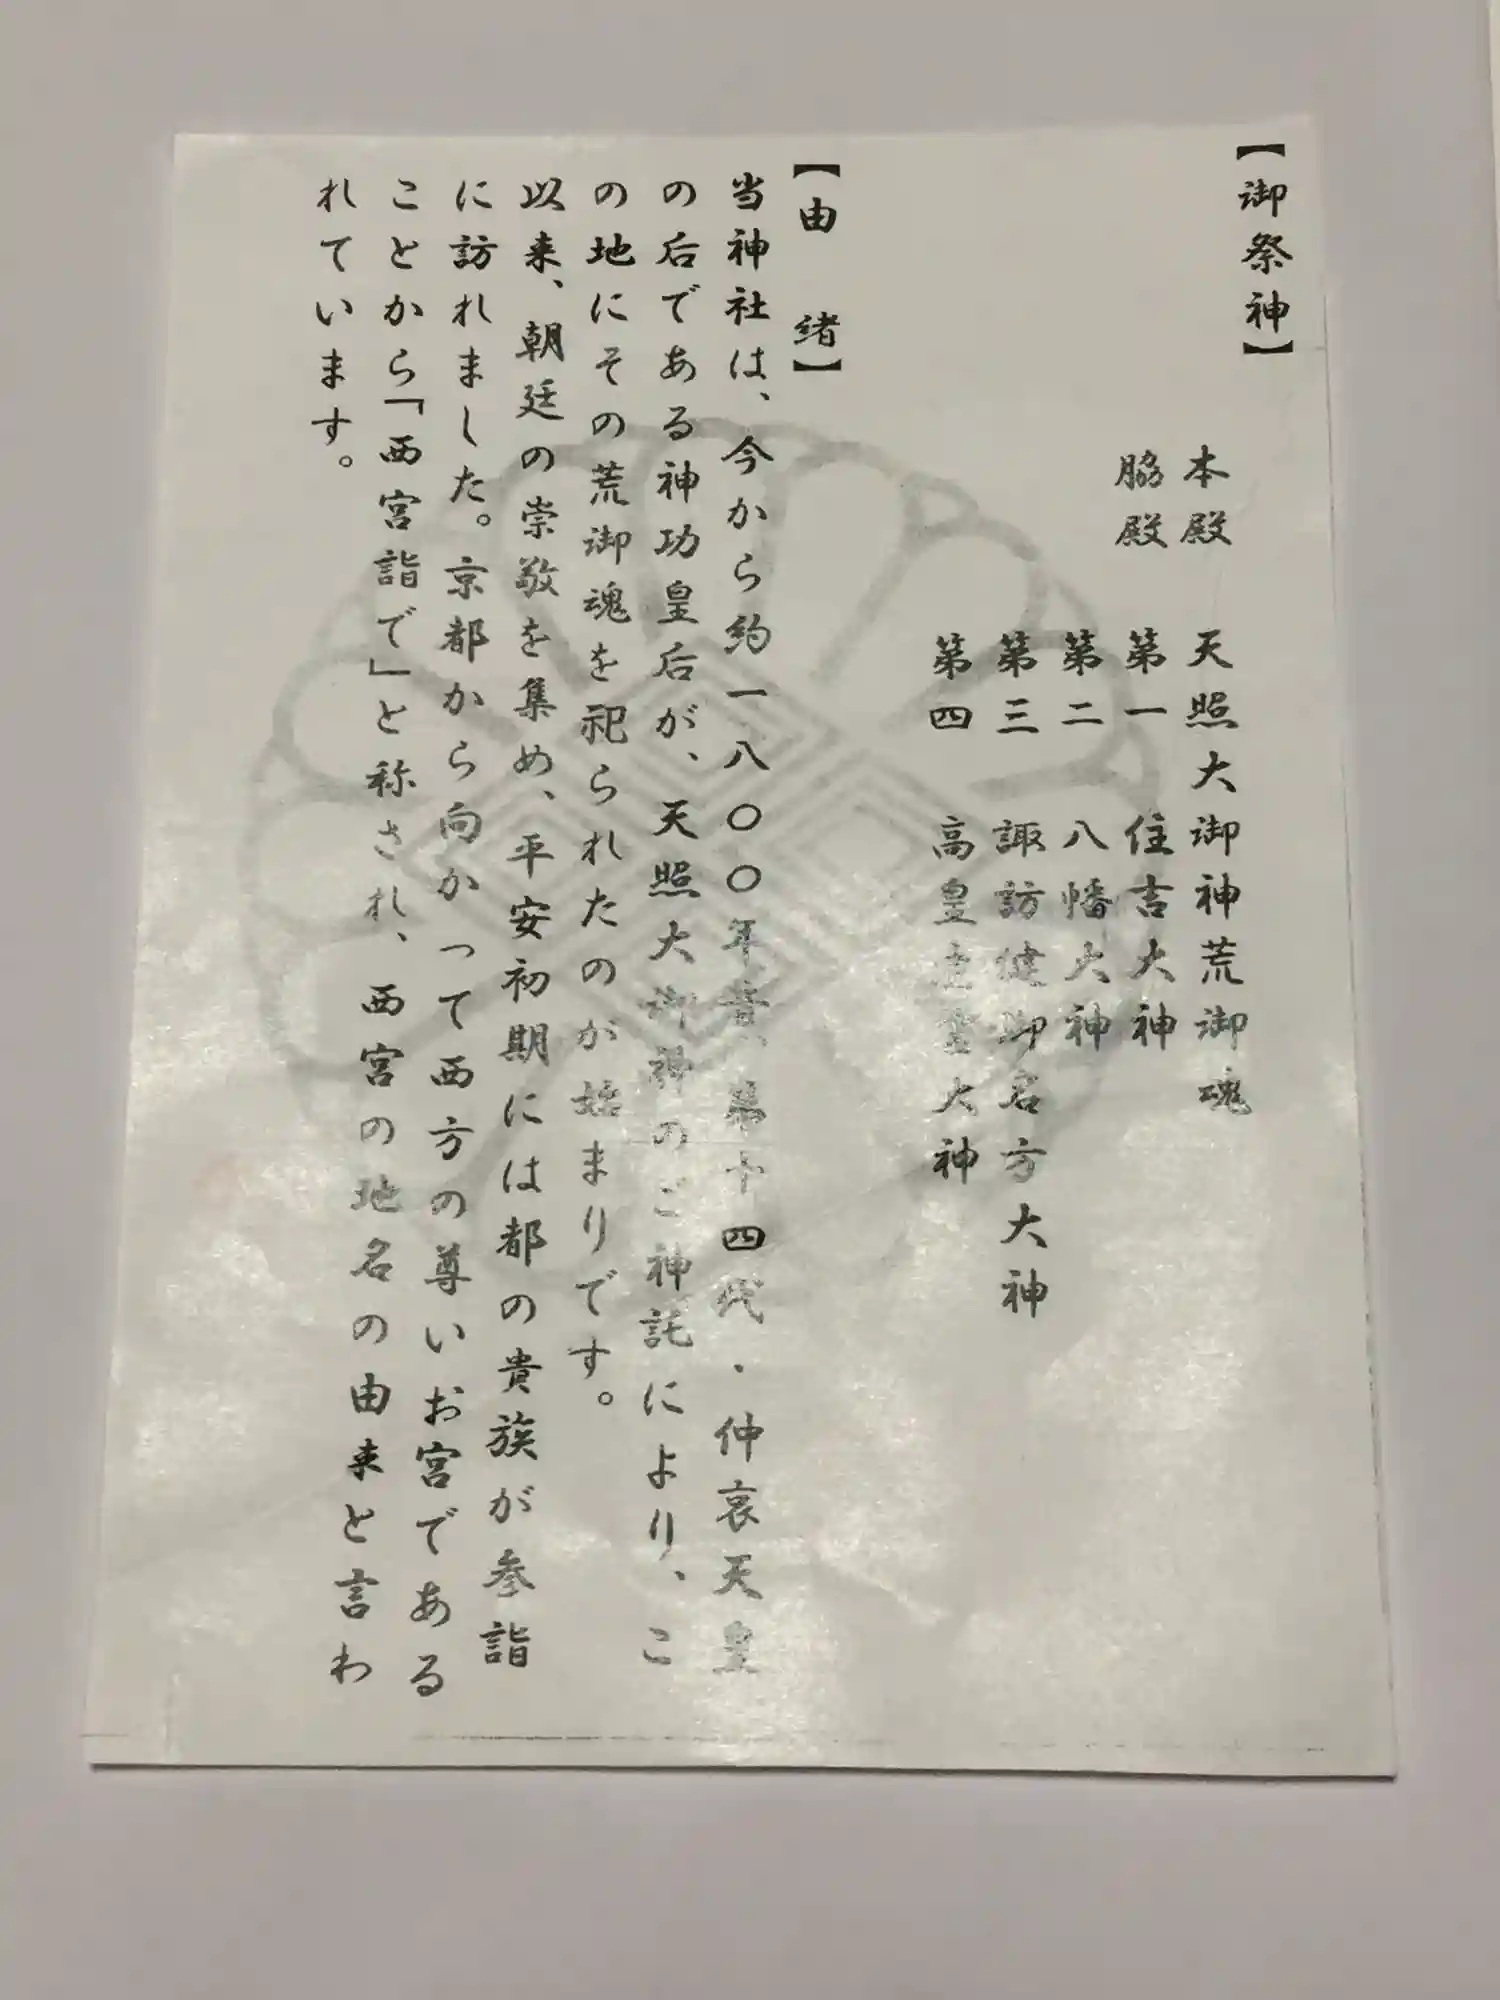 【御祭神】
本殿　天照大御神荒御魂
脇殿　第一　住吉大神
第二　八幡大神
第三　諏訪健御名方大神
第四　高皇産霊大神
【由　緒】
当神社は、今から約一八〇〇年昔、第十四代・仲哀天皇
の后である神功皇后が、天照大御神のご神託により、こ
の地にその荒御魂を祀られたのが始まりです。
以来、朝廷の崇敬を集め、平安初期には都の貴族が参詣
に訪れました。京都から向かって西方の尊いお宮である
ことから「西宮詣で」と称され、西宮の地名の由来と言わ
れています。